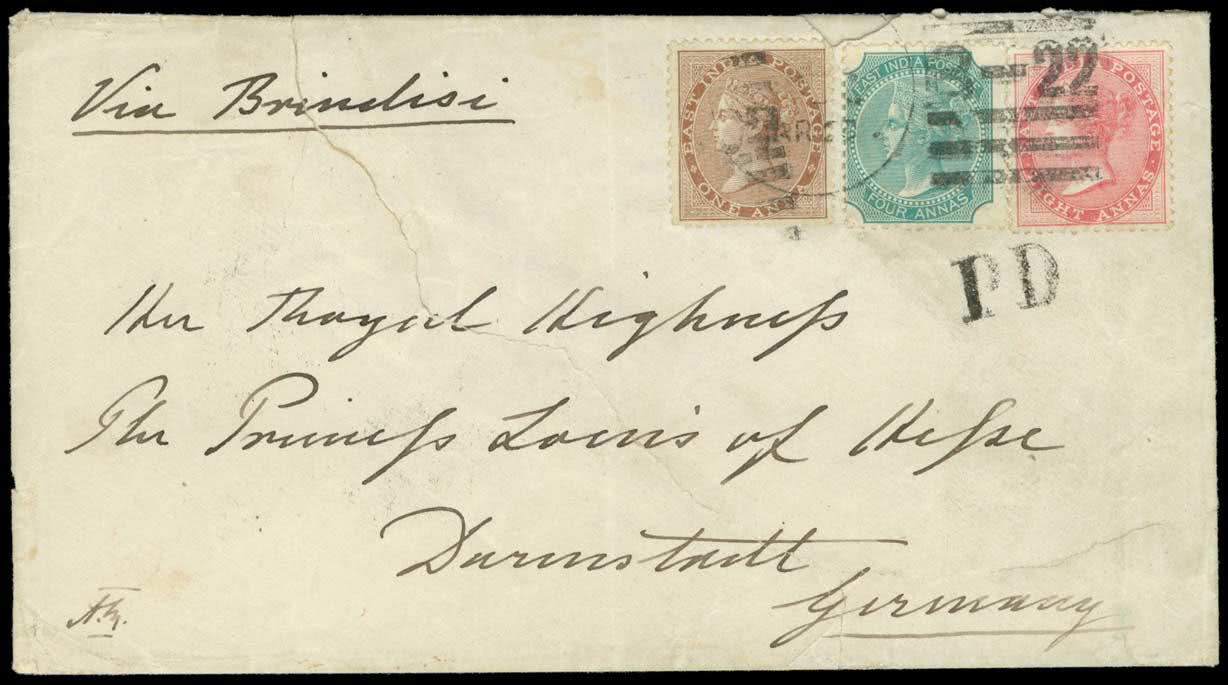 Via Brindisi
EAST INDIA POSTAGE
ONE ANNA
EAST INDIA POSTAGE
FOUR ANNAS
EAST INDIA POSTAGE
EIGHT ANNAS
22
PD
Her Royal Highness
The Princess Louis of Hesse
Darmstadt
Germany